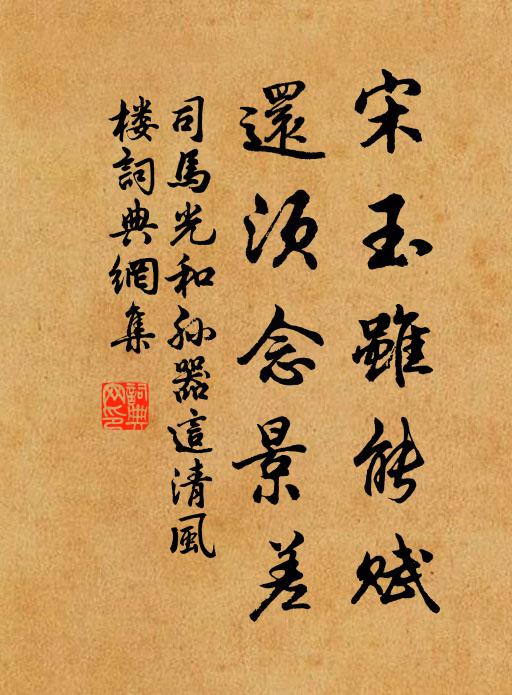 宋玉雖能賦
還須念景差
司馬光和孙器這清風
楼詞典網集
詞典
网印